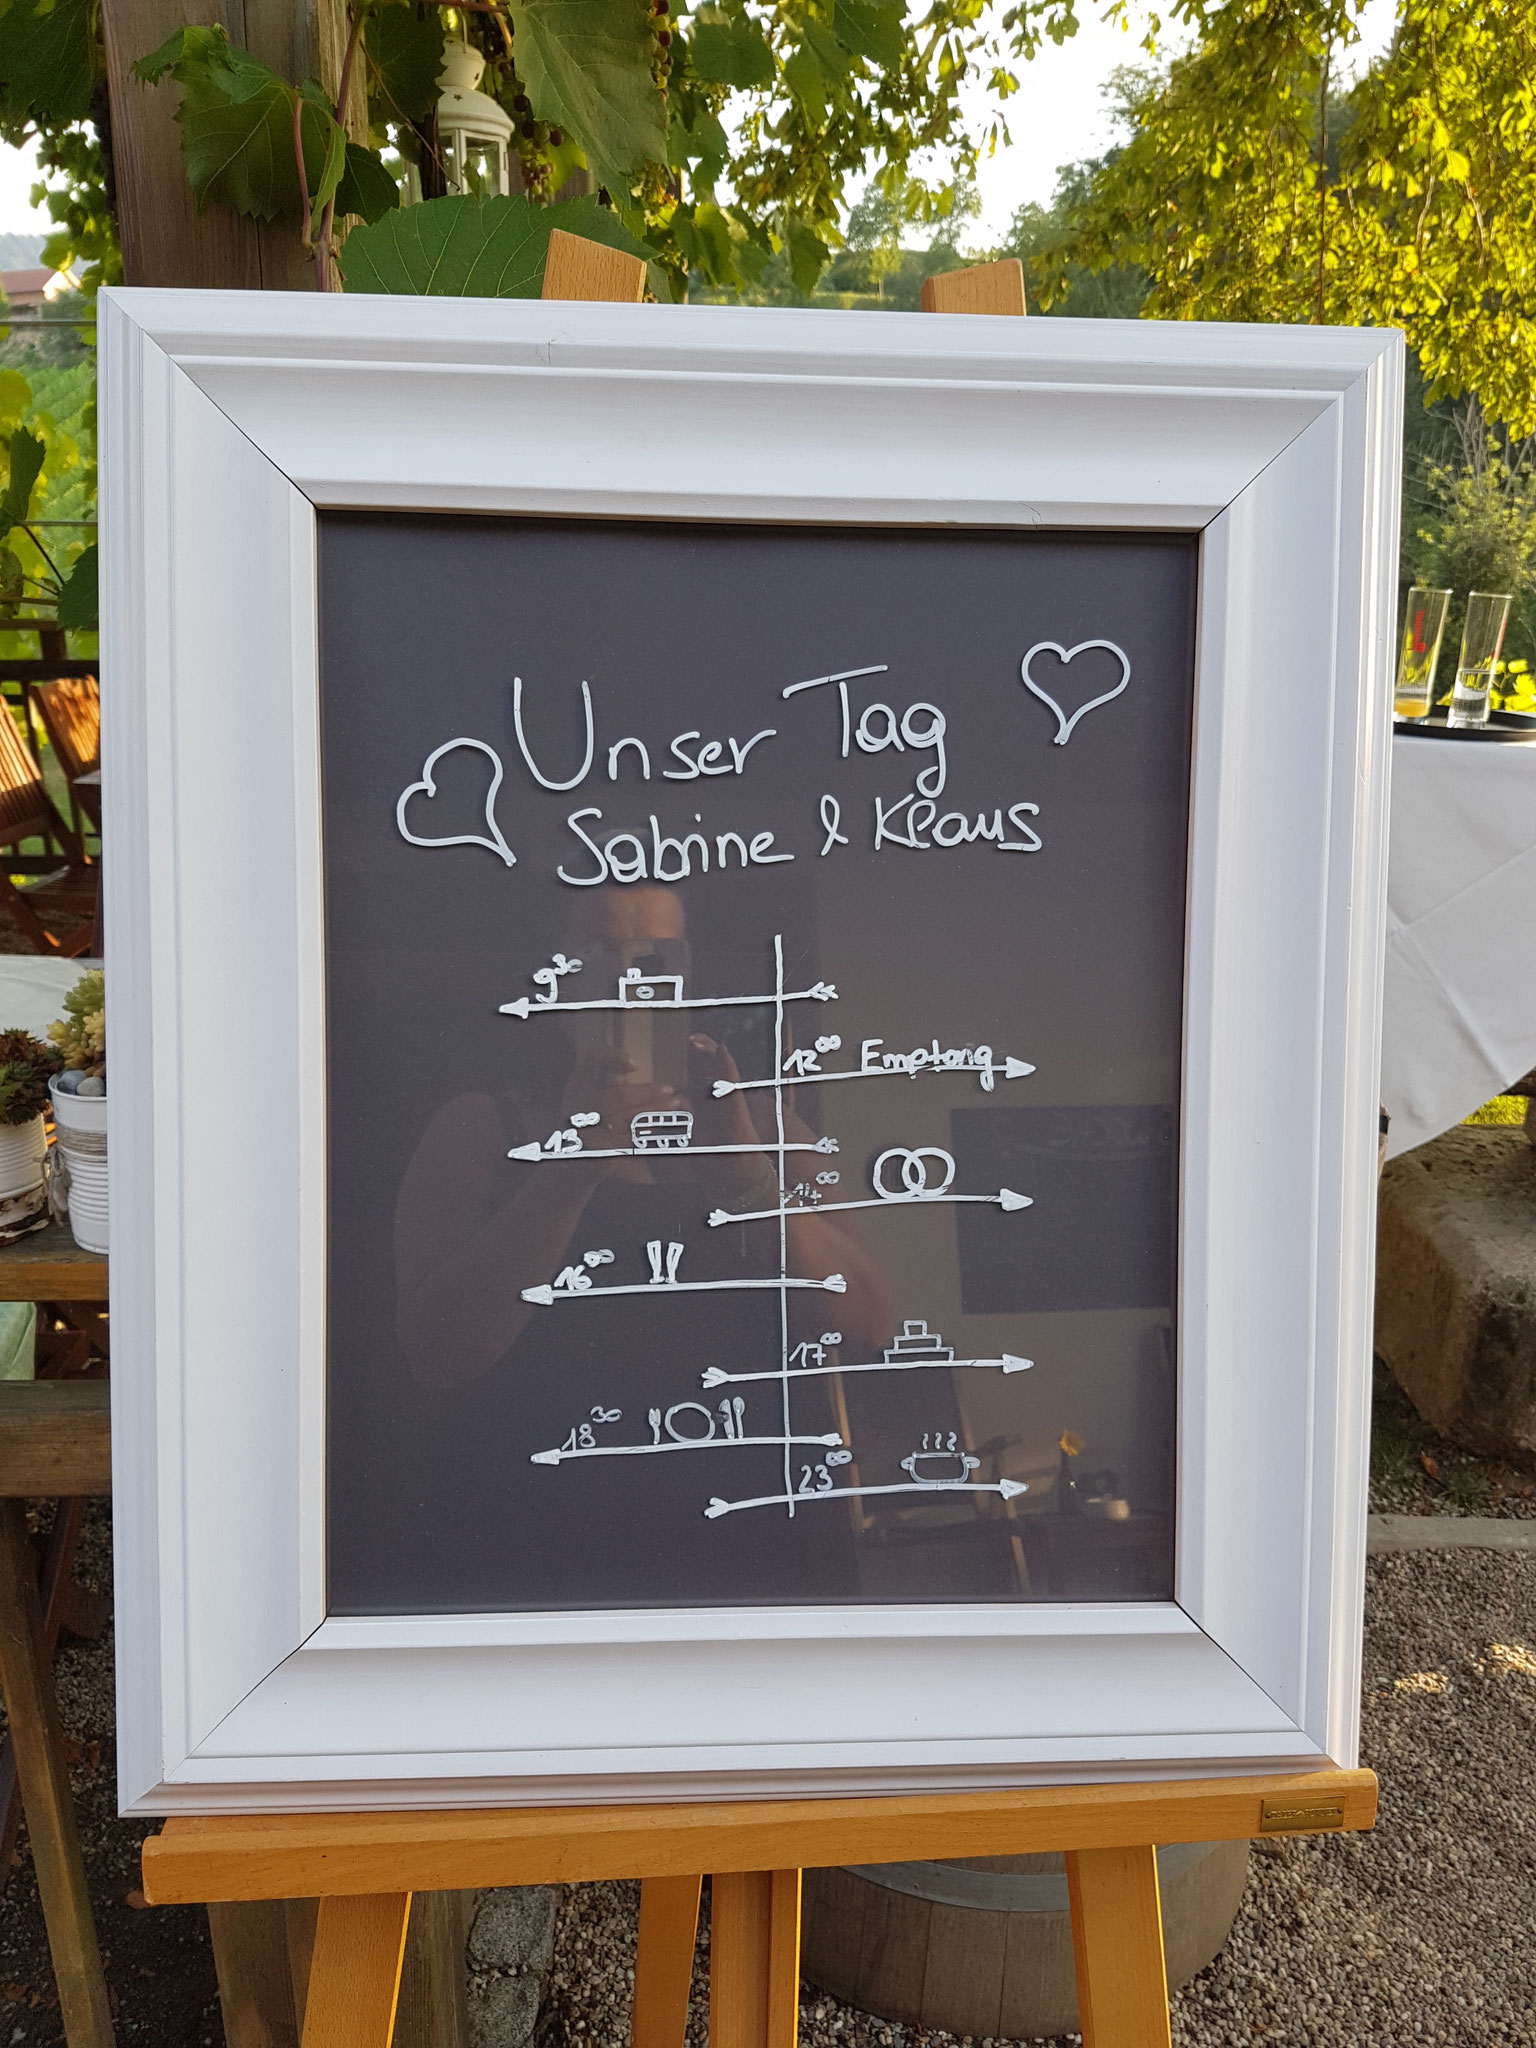 Unser Tag
Sabine & Klaus
9³⁰
12⁰⁰ Empfang
13⁰⁰
14⁰⁰
16⁰⁰
17⁰⁰
18³⁰
23⁰⁰